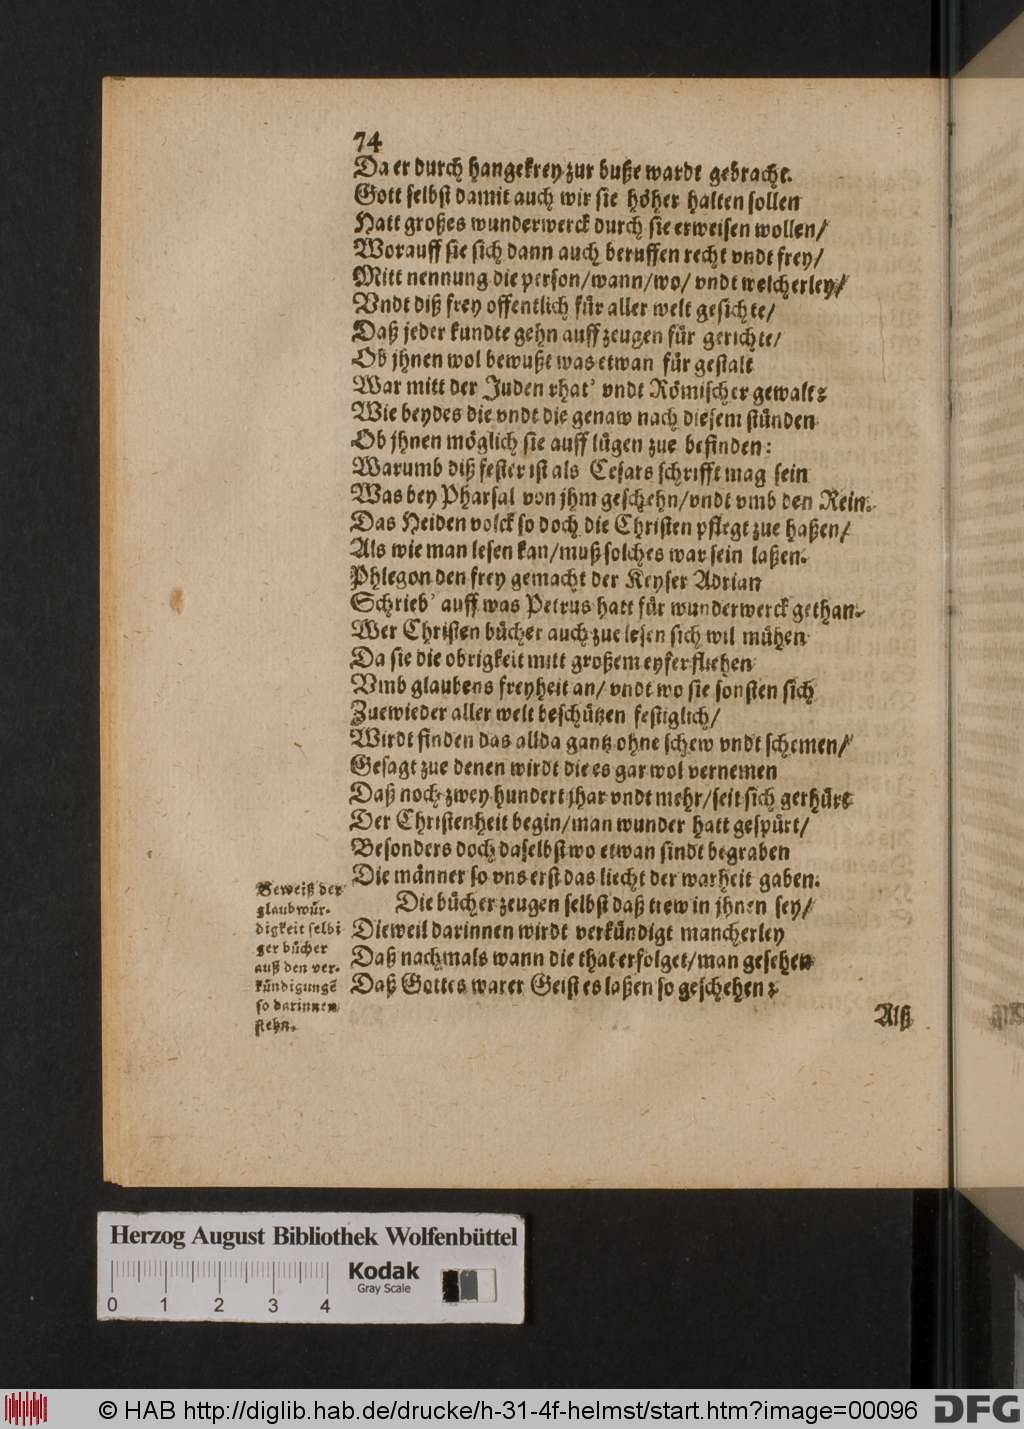 74
Da er durch hangekrey zur buße wardt gebracht.
Gott selbst damit auch wir sie höher halten sollen
Hatt großes wunderwerck durch sie erweisen wollen/
Worauff sie sich dann auch beruffen recht vndt frey/
Mitt nennung die person/wann/wo/ vndt welcherley/
Vndt diß frey offentlich für aller welt gesichte/
Daß jeder kundte gehn auff zeugen für gerichte/
Ob jhnen wol bewußt was etwan für gestalt
War mitt der Juden rhat' vndt Römischer gewalt:
Wie beydes die vndt die genaw nach diesem stünden
Ob jhnen möglich sie auff lügen zue befinden:
Warumb diß fester ist als Cesars schrifft mag sein
Was bey Pharsal von jhm geschehn/vndt vmb den Rein.
Das Heiden volck so doch die Christen pflegt zue haßen/
Als wie man lesen kan/muß solches war sein laßen.
Phlegon den frey gemacht der Keyser Adrian
Schrieb' auff was Petrus hatt für wunderwerck gethan.
Wer Christen bücher auch zue lesen sich wil mühen
Da sie die obrigkeit mitt großem eyfer fliehen
Vmb glaubens freyheit an/ vndt wo sie sonsten sich
Zuewieder aller welt beschützen festiglich/
Wirdt finden das allda gantz ohne schew vndt schemen/
Gesagt zue denen wirdt die es gar wol vernemen
Daß noch zwey hundert jhar vndt mehr/seit sich gerhürt
Der Christenheit begin/man wunder hatt gespürt/
Besonders doch daselbst wo etwan sindt begraben
Die männer so vns erst das liecht der warheit gaben.
Beweiß der
glaubwür-
digkeit selbi
ger bücher
auß den ver-
kündigungē
so darinnen
stehn.
Die bücher zeugen selbst daß trew in jhnen sey/
Dieweil darinnen wirdt verkündigt mancherley
Daß nachmals wann die that erfolget/man gesehen
Daß Gottes warer Geist es laßen so geschehen:
Alß
Herzog August Bibliothek Wolfenbüttel
0 1 2 3 4
Kodak
Gray Scale
© HAB http://diglib.hab.de/drucke/h-31-4f-helmst/start.htm?image=00096
DFG